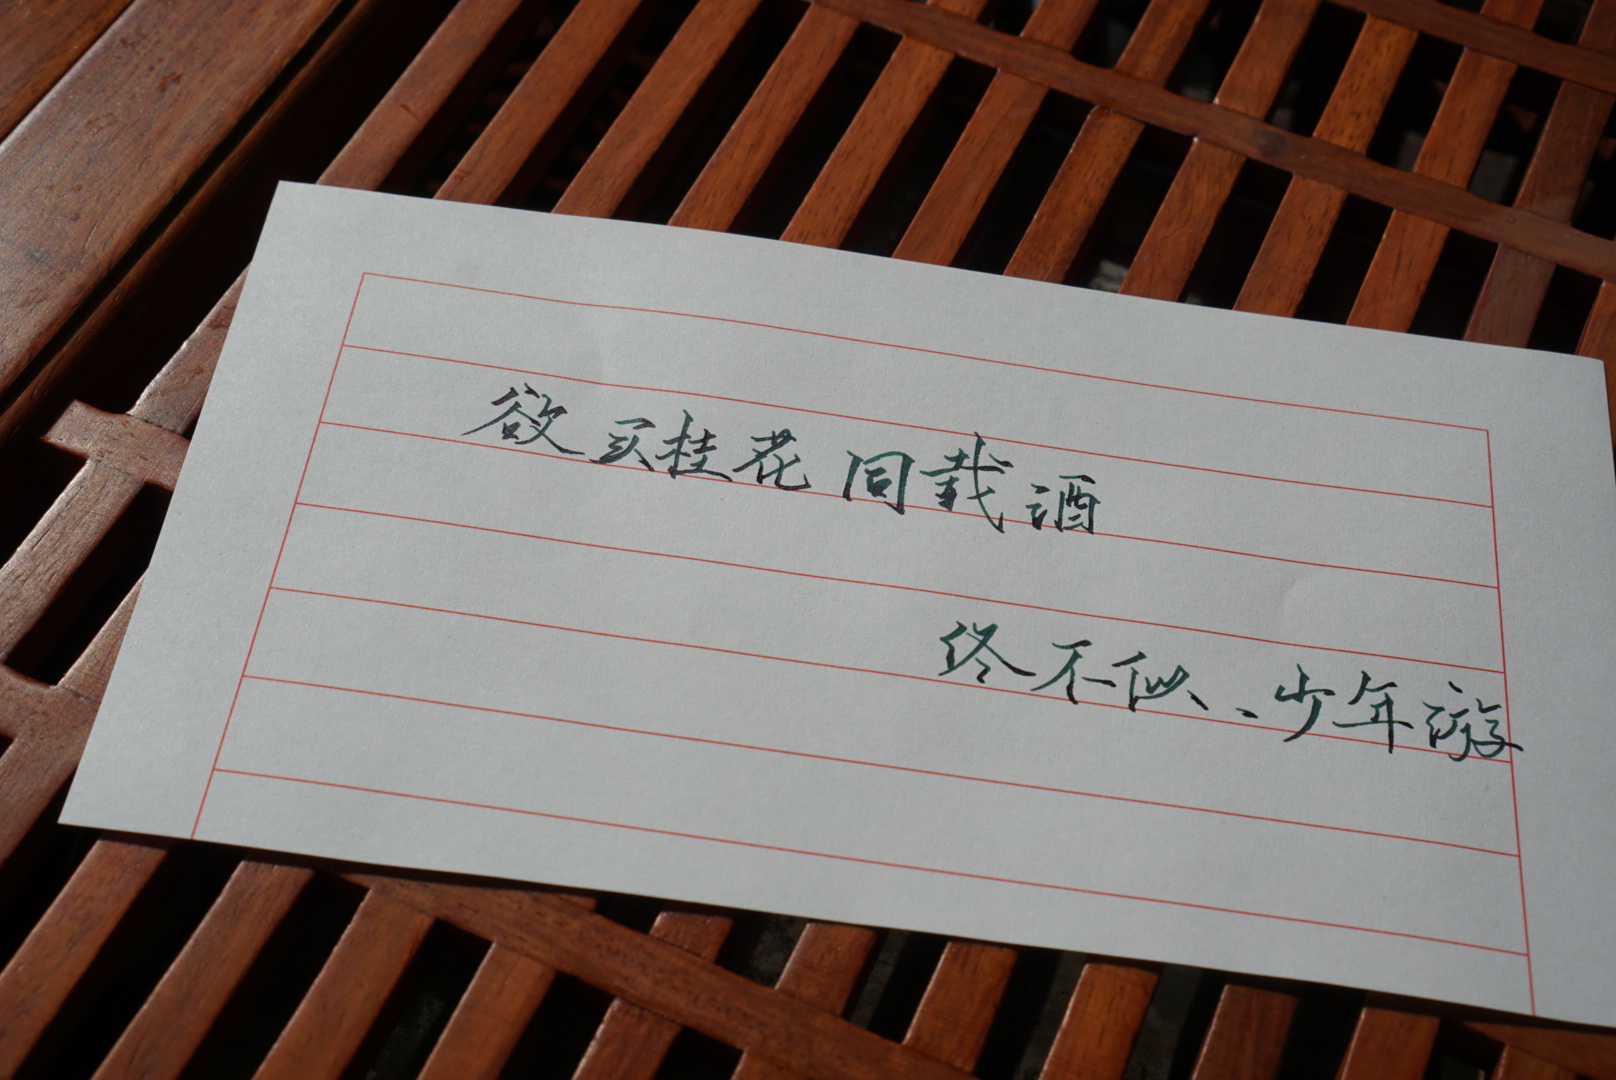 欲买桂花同载酒
终不似、少年游